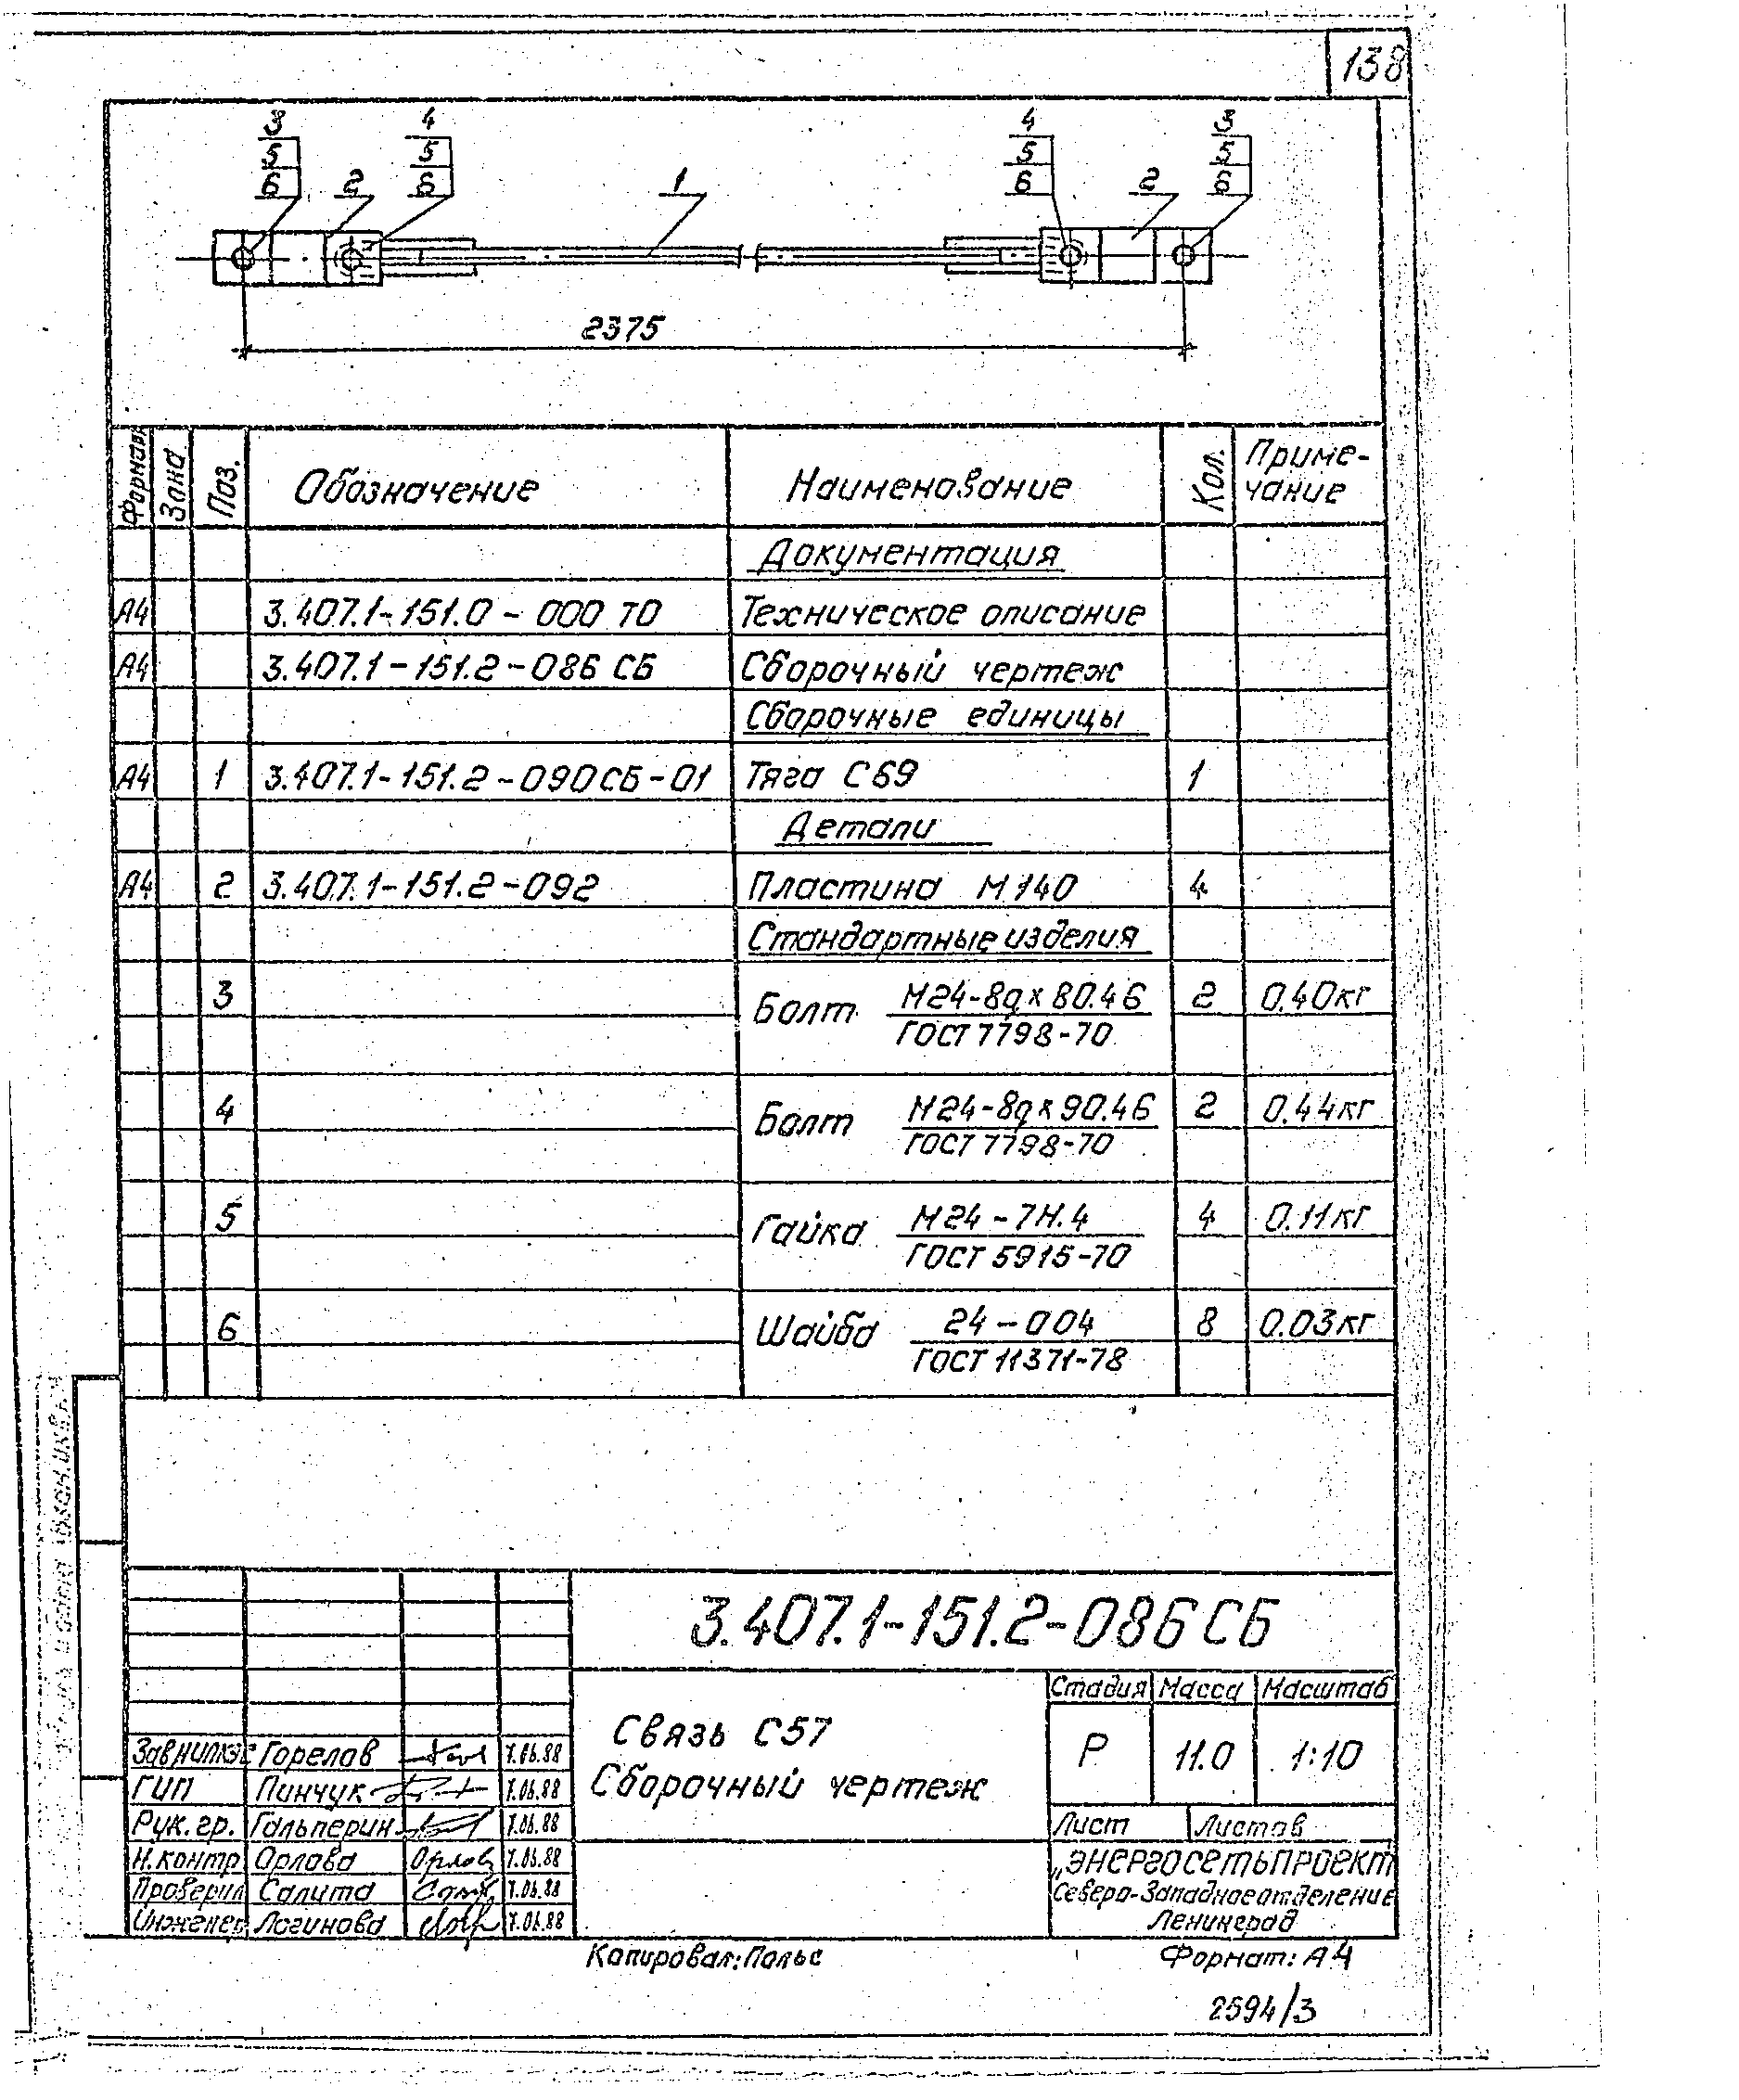 138
3 4 4 3
5 5 5 5
6 2 6 1 6 2 6
2375
Формат Зона Поз. Обозначение Наименование Кол. Приме-
чание
Документация
А4 3.407.1-151.0-000 ТО Техническое описание
А4 3.407.1-151.2-086 СБ Сборочный чертеж
Сборочные единицы
А4 1 3.407.1-151.2-090СБ-01 Тяга С69 1
Детали
А4 2 3.407.1-151.2-092 Пластина М140 4
Стандартные изделия
3 Болт М24-8gх80.46 2 0.40кг
ГОСТ 7798-70
4 Болт М24-8gх90.46 2 0.44кг
ГОСТ 7798-70
5 Гайка М24-7Н.4 4 0.11кг
ГОСТ 5915-70
6 Шайба 24-004 8 0.03кг
ГОСТ 11371-78
3.407.1-151.2-086 СБ
Связь С57
Сборочный чертеж
Стадия Масса Масштаб
Р 11.0 1:10
Лист Листов
„ЭНЕРГОСЕТЬПРОЕКТ
Северо-Западное отделение
Ленинград
ЗавНИЛКЭС Горелов 7.06.88
ГИП Пинчук 7.06.88
Рук. гр. Гальперин 7.06.88
Н.контр Орлова 7.06.88
Проверил Салита 7.06.88
Инженер Логинова 7.06.88
Копировал: Польс Формат: А4
2594/3